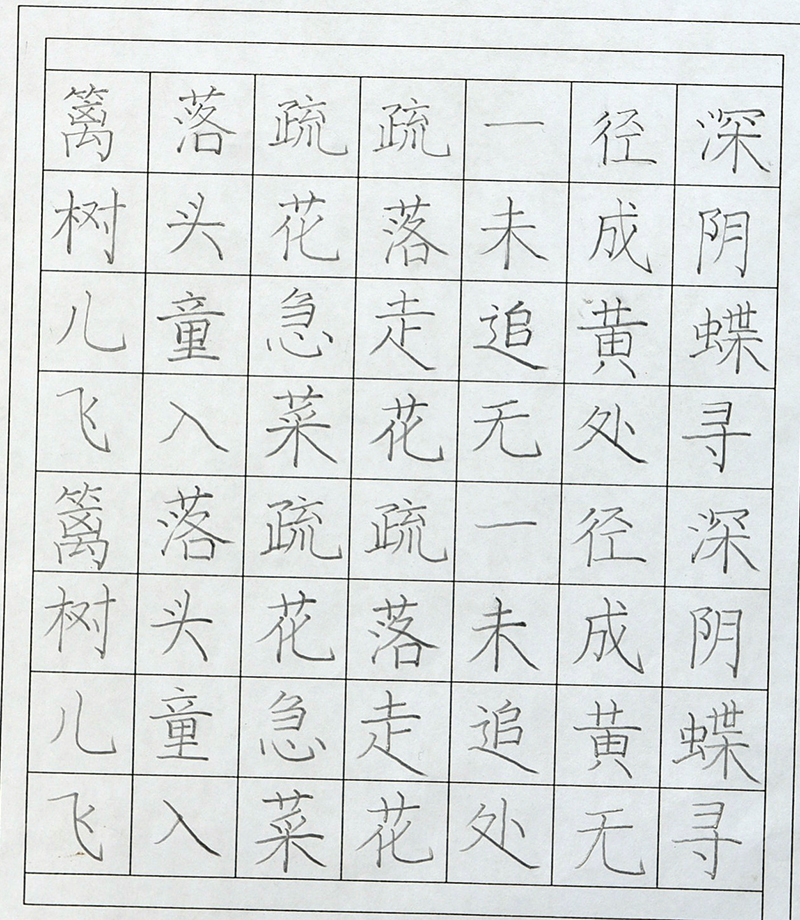 篱落疏疏一径深
树头花落未成阴
儿童急走追黄蝶
飞入菜花无处寻
篱落疏疏一径深
树头花落未成阴
儿童急走追黄蝶
飞入菜花处无寻